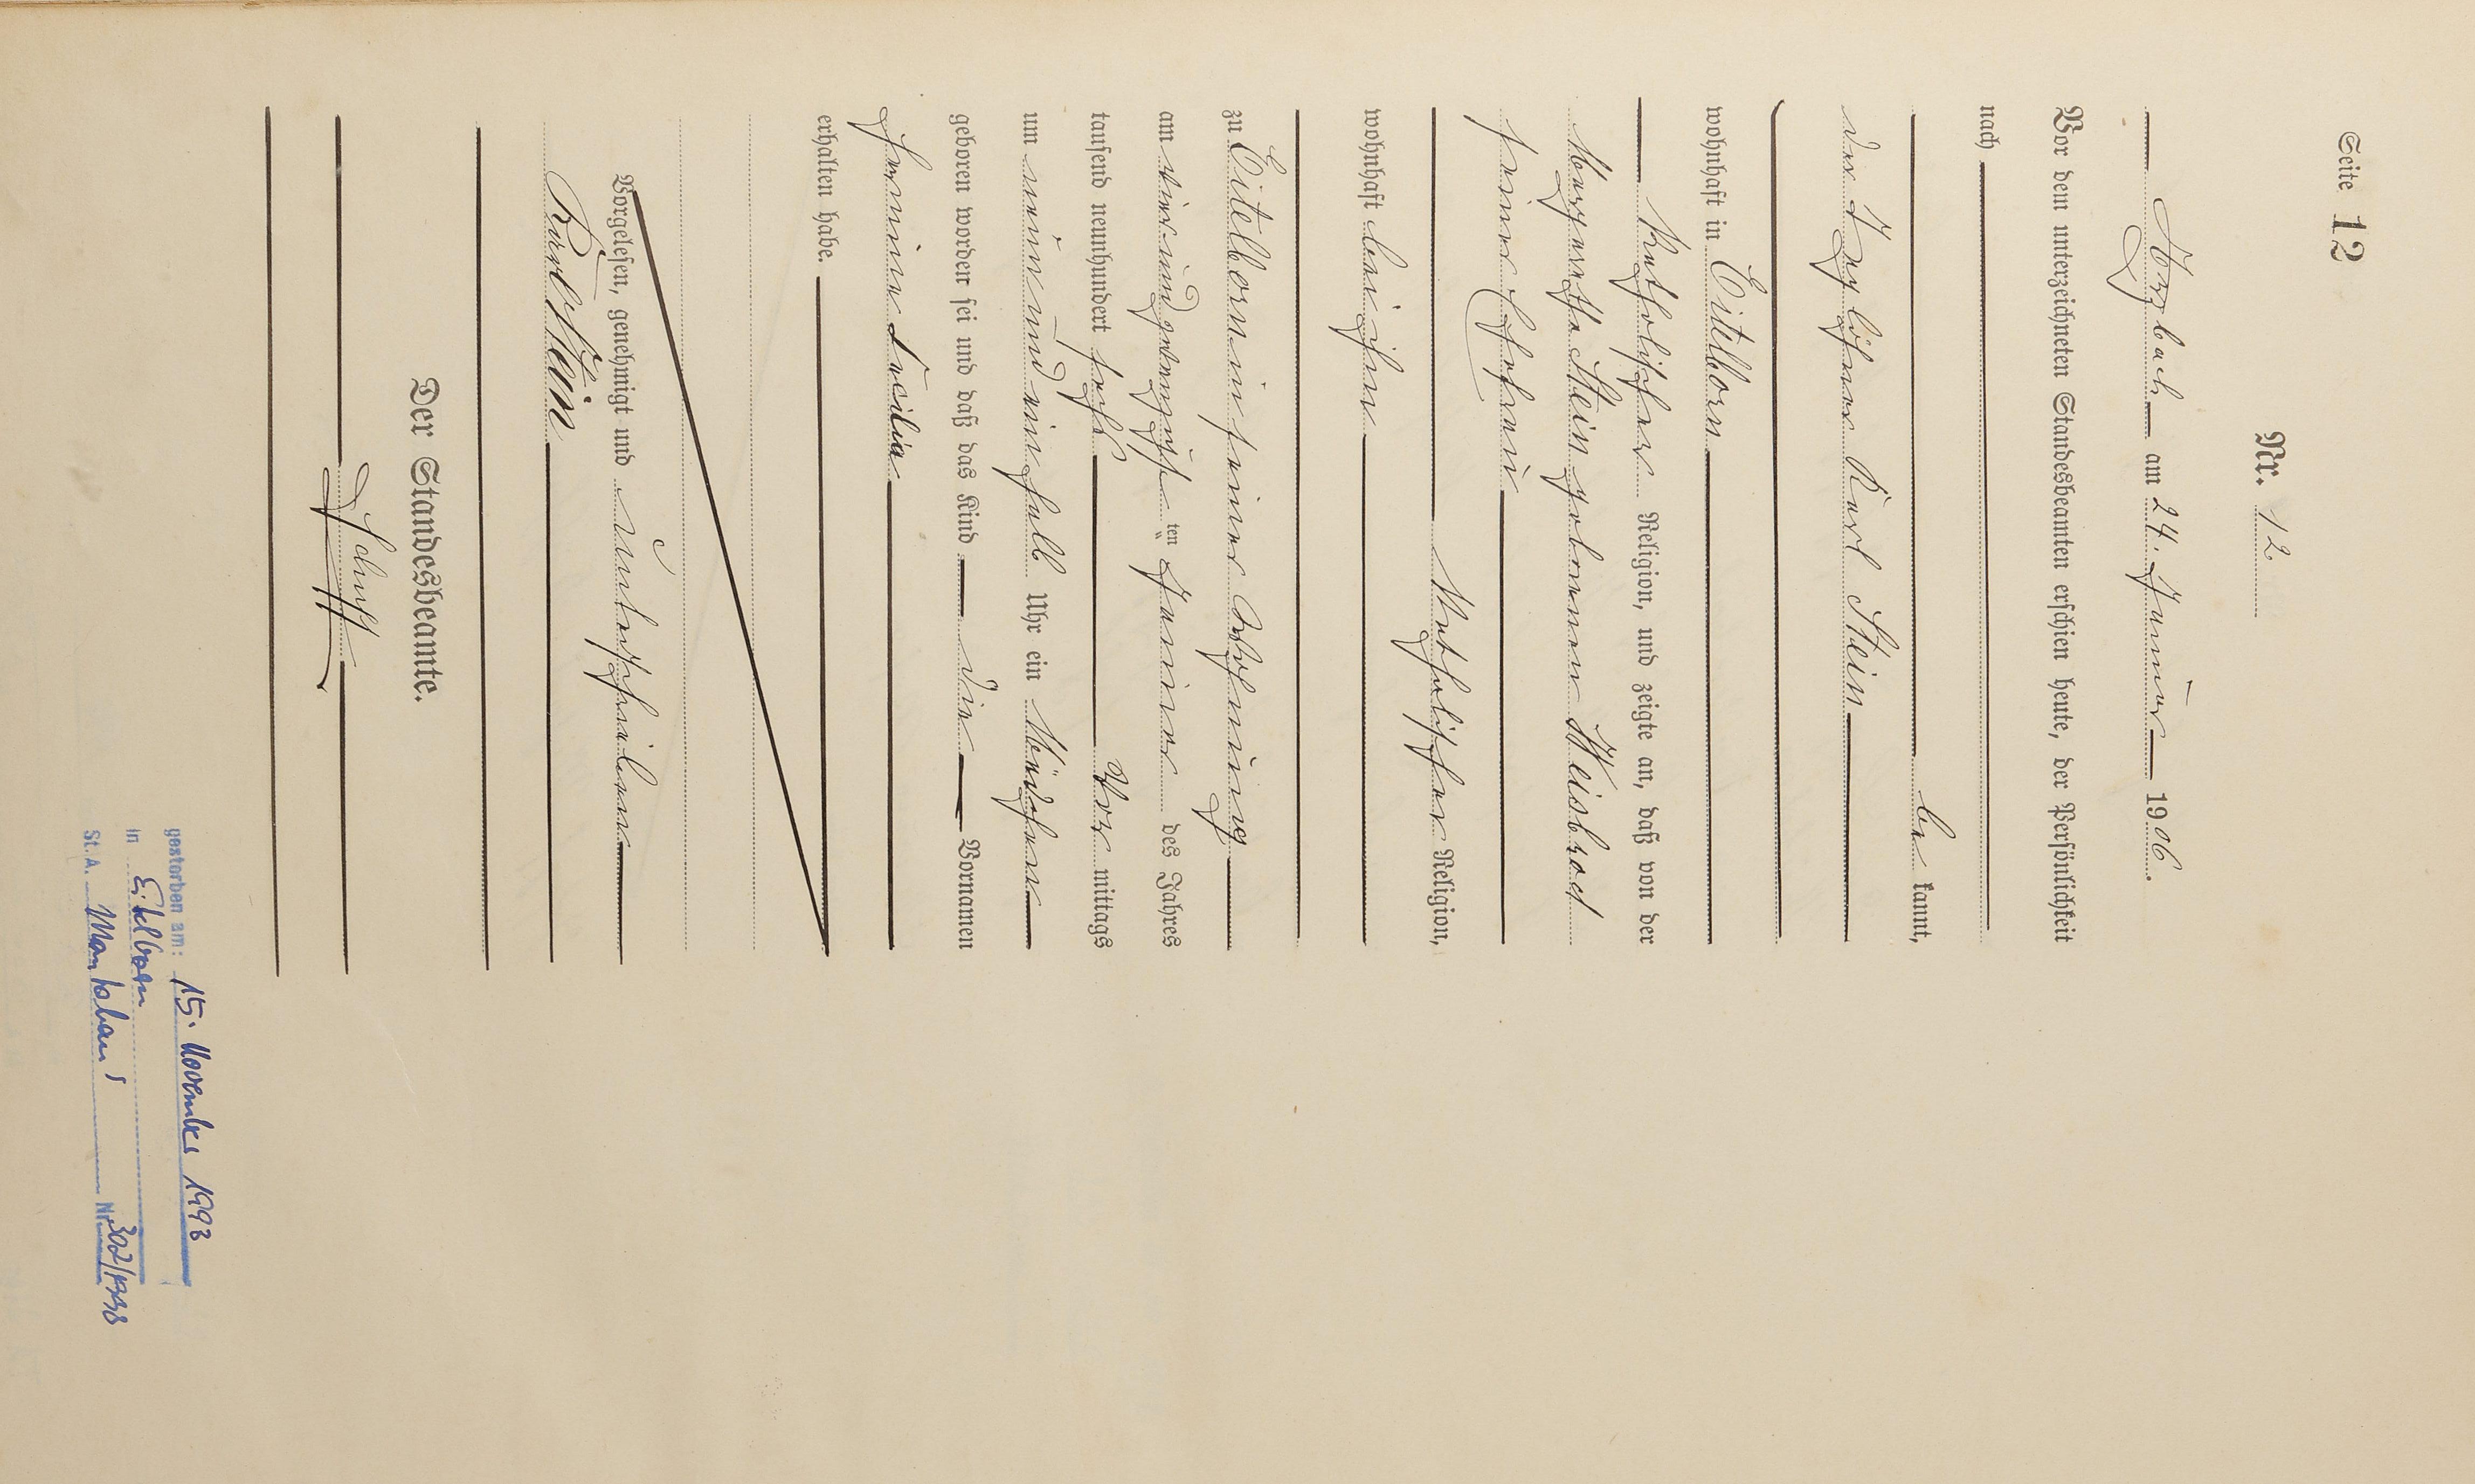 Seite 12
Nr. 12
Arzbach am 24. Januar 1906.
Vor dem unterzeichneten Standesbeamten erschien heute, der Persönlichkeit
nach
be kannt,
der Taglöhner Karl Stein
wohnhaft in Eitelborn
katholischer Religion, und zeigte an, daß von der
Margaretha Stein geborenen Weisbrod
seiner Ehefrau
katholischer Religion,
wohnhaft bei ihm
zu Eitelborn in seiner Wohnung
am vierundzwanzigsten Januar des Jahres
tausend neunhundert sechs Vor mittags
um neun und ein halb Uhr ein Mädchen
geboren worden sei und daß das Kind die Vornamen
Cäcilia
erhalten habe.
Vorgelesen, genehmigt und unterschrieben
Karl Stein
Der Standesbeamte.
gestorben am: 15. November 1993
in Eitelborn
St. A. Montabaur Nr. 302/1993